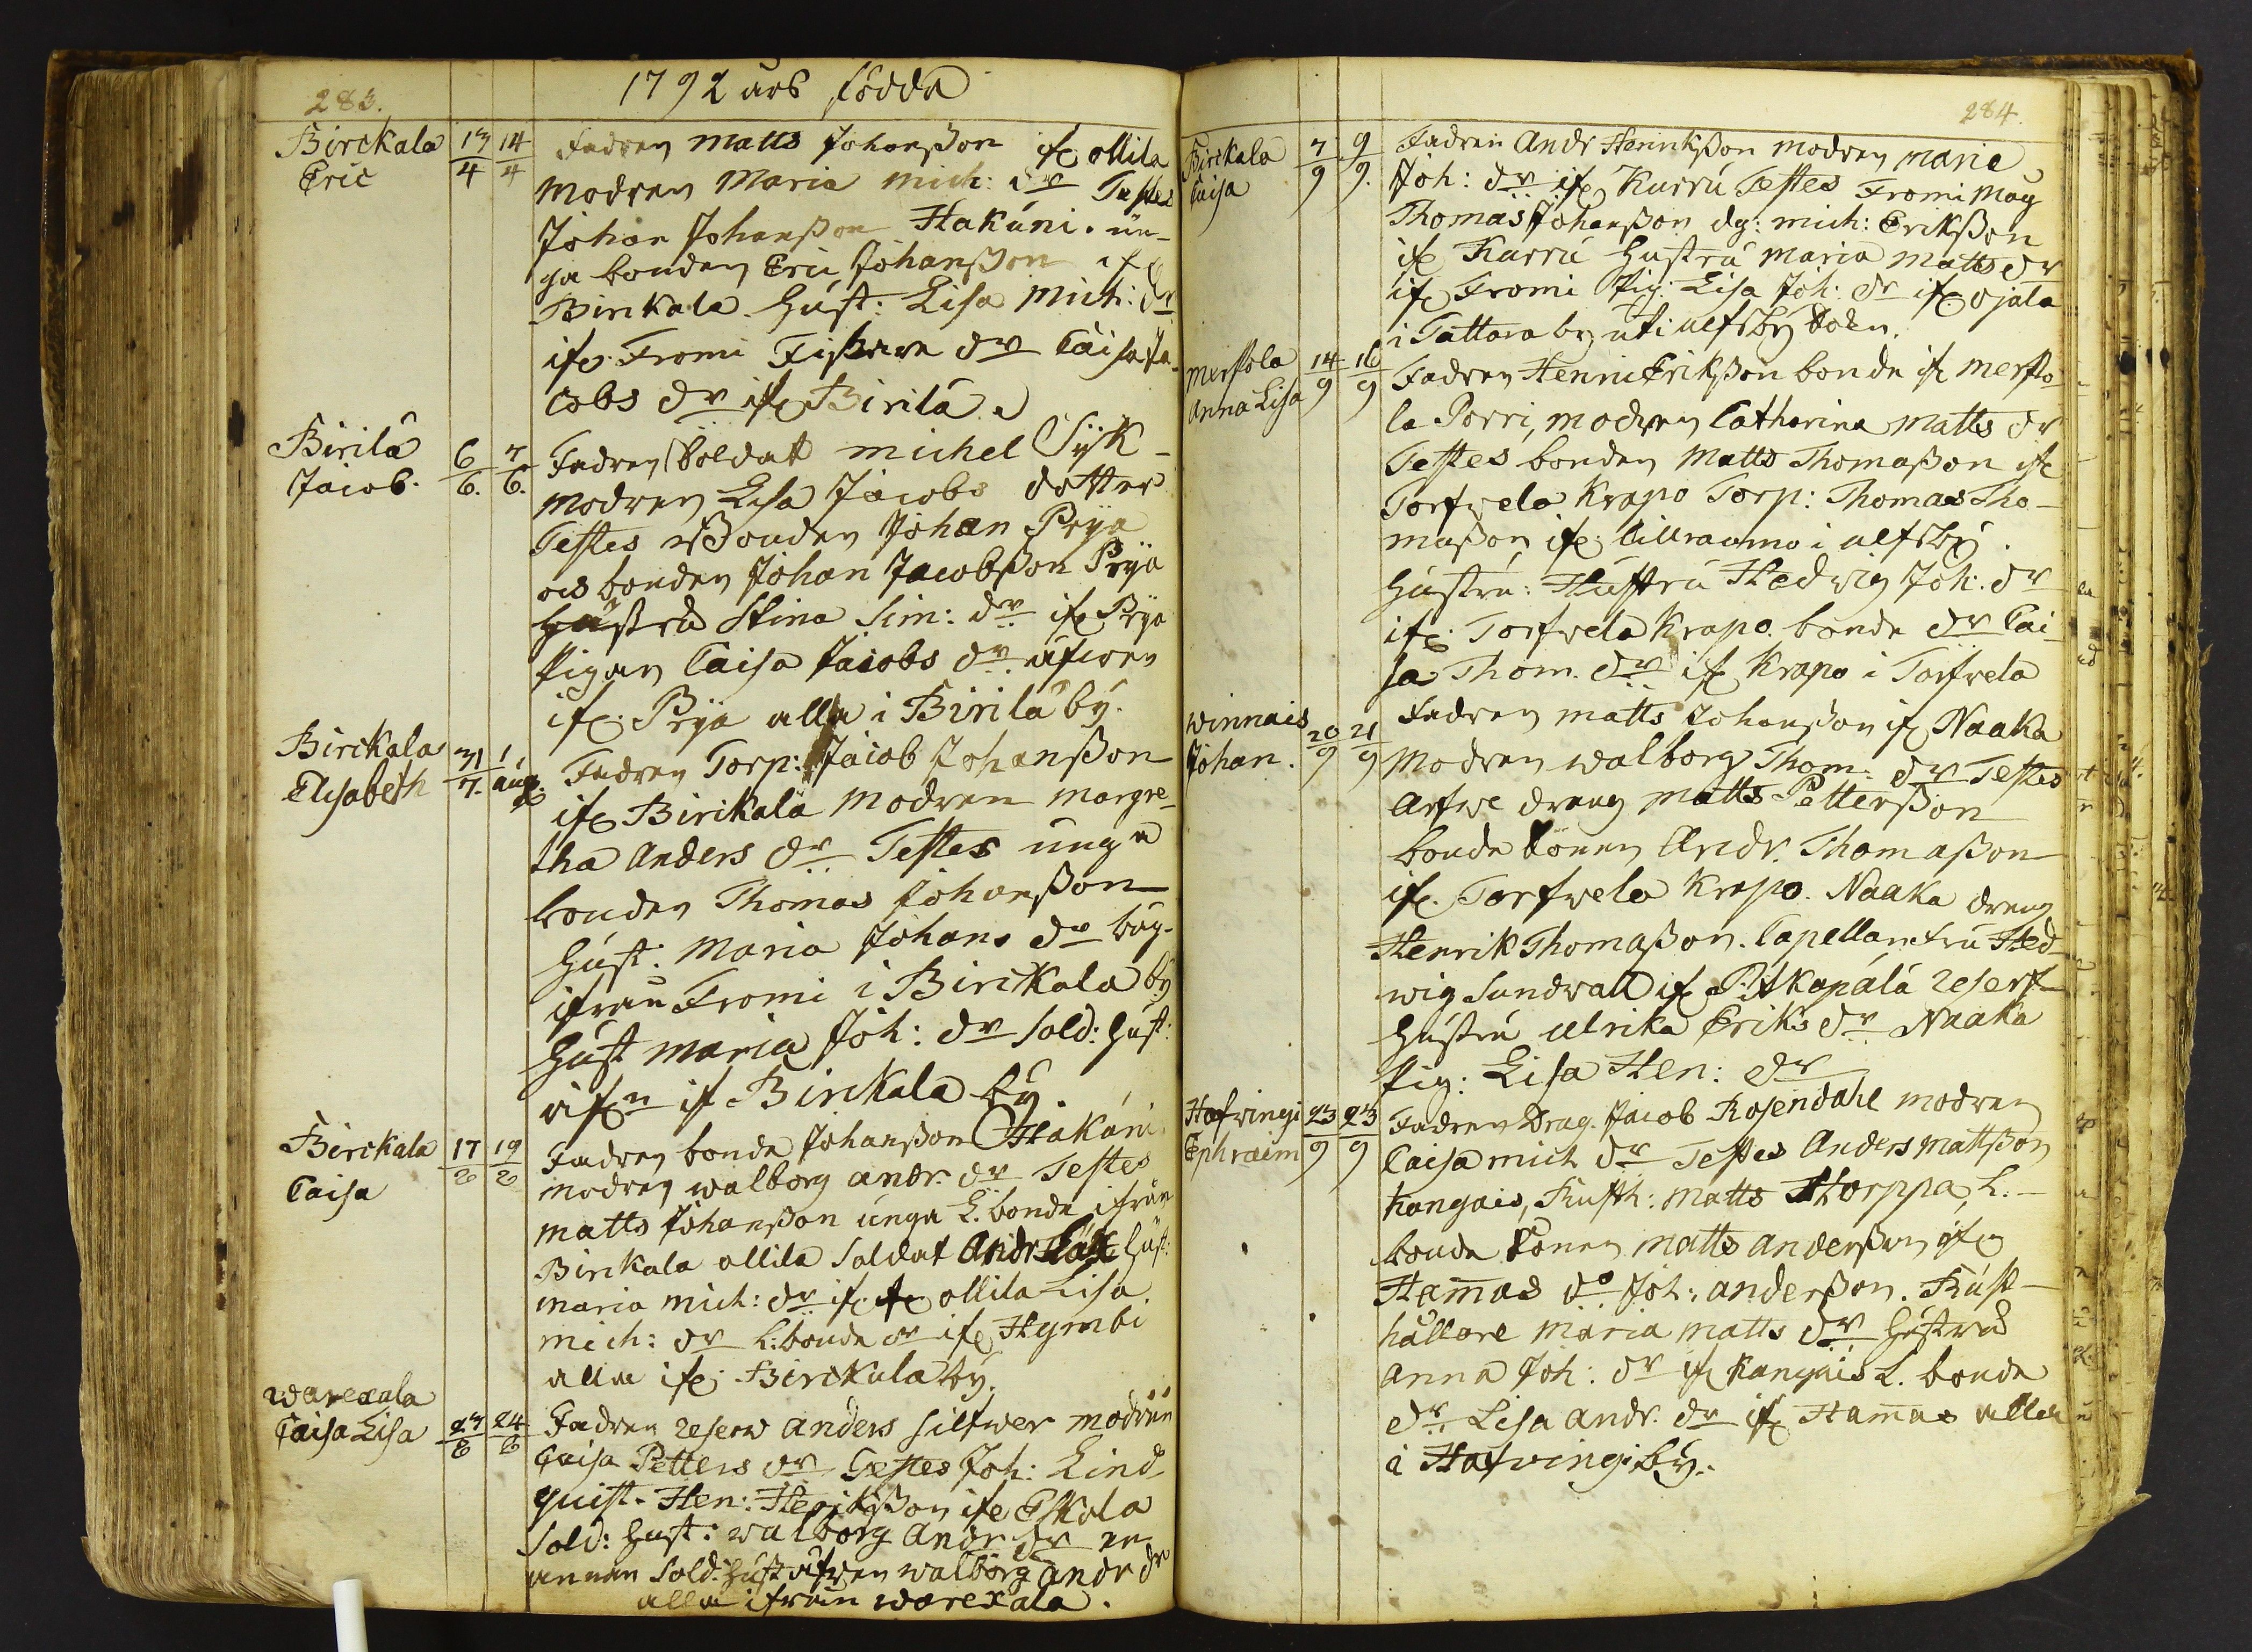 283.
1792 års födda
Birckala 13/4 14/4 Fadren Matts Johansson ifr ollila
Eric modren Maria Mich: dr Testes
Johan Johansson Hakuni. un-
ga bonden Eric Johansson ifr
Birikala. Hust: Lisa Mich: dr
ifr. Fromi Fiskare dr Caisa Ja-
cobs dr ifr Birilä
Birilä 6/6. 7/6. Fadren Soldat michel Syk
Jacob. modren Lisa Jacobs dotter
Testes Bonden Johan Pryä
bonden Johan Jacobsson Pryä
Hustru Stina Sim: dr ifr Pryä
Pigan Caisa Jacobs dr äfwen
ifr. Pryä alla i Birilä by.
Birckala 31/7. 1/aug. Fadren Torp: Jacob Johansson
Elisabeth ifr Birikala Modren Margre-
tha Anders dr Testes unga
bonden Thomas Johansson
Hust: Maria Johans dr
ifrån Fromi i Birckala by
Hust maria Joh: dr Sold: Hust:
if Birckala by.
Birckala 17/8 19/8 Fadren bonde Johansson Hakuni
Caisa modren walborg andr. dr Testes
matts Johansson unga L. bonde ifrån
Birikala ollila Soldat Andr Hust:
maria mich: dr if. ollila Lisa
mich: dr L: bonde dr ifr Hymbi
alla ifr. Birckala by.
warexala
Caisa Lisa 23/8 24/8 Fadren reserw anders silfwer modren
Caisa Petters dr Testes Joh: Lind
quist. Hen: Henriksson ifr Eskola
Sold: Hust: walborg Andr dr en
annan Sold: Hust äfwen walborg andr dr
alla ifrån warexala.
284.
Birckala 7/9 9/9. Fadren Andr Henriksson modren marie
Caisa Joh: dr ifr Kurru Testes Fromi Mag
Thomas Johansson dg: mich: Eriksson
ifr Kurru Hustru Maria matts dr
ifr Fromi Pig: Lisa Joh: dr ifr ojala
i Tattara by uti ulfsby Sokn.
Merstola 14/9 16/9 Fadren Henric Eriksson bonde ifr Mersto-
Anna Lisa la Porri, modren Catharina Matts dr
Testes bonden Matts Thomasson ifr
Torfvela Krapo Torp: Thomas Tho-
masson ifr. Lillraumo i ulfsby.
Hustru: Hustru Hedvig Joh: dr
ifr. Torfvela Krapo. bonde dr Cai
sa Thom. dr ifr Krapo i Torfvela
winnais 20/9 21/9 Fadren matts Johansson ifr Naaka
Johan. Modren walborg Thom: dr Testes
Arfwe dreng matts Pettersson
bonde sonen Andr. Thomasson
ifr. Torfvela Krapo. Naaka dreng
Henrik Thomasson. Capellans fru Hed
wig Sundvall ifr Pitkäpälä reserf
Hustru Ulrika Eriks dr Naaka
Pig: Lisa Hen: dr
Hafvingi 23/9 23/9 Fadren Drag. Jacob Rosendahl modren
Ephraim Caisa mich dr Testes Anders mattsson
Kangais, Rusth: matts Storppa, L.
bonde sonen matts andersson ifr
Ham̄as do Joh: andersson. Rust-
hållare maria matts dr Hustru
anna Joh: dr ifr Kangais L. bonde
dr. Lisa Andr. dr ifr Ham̄as alla
i Hafvingi by.